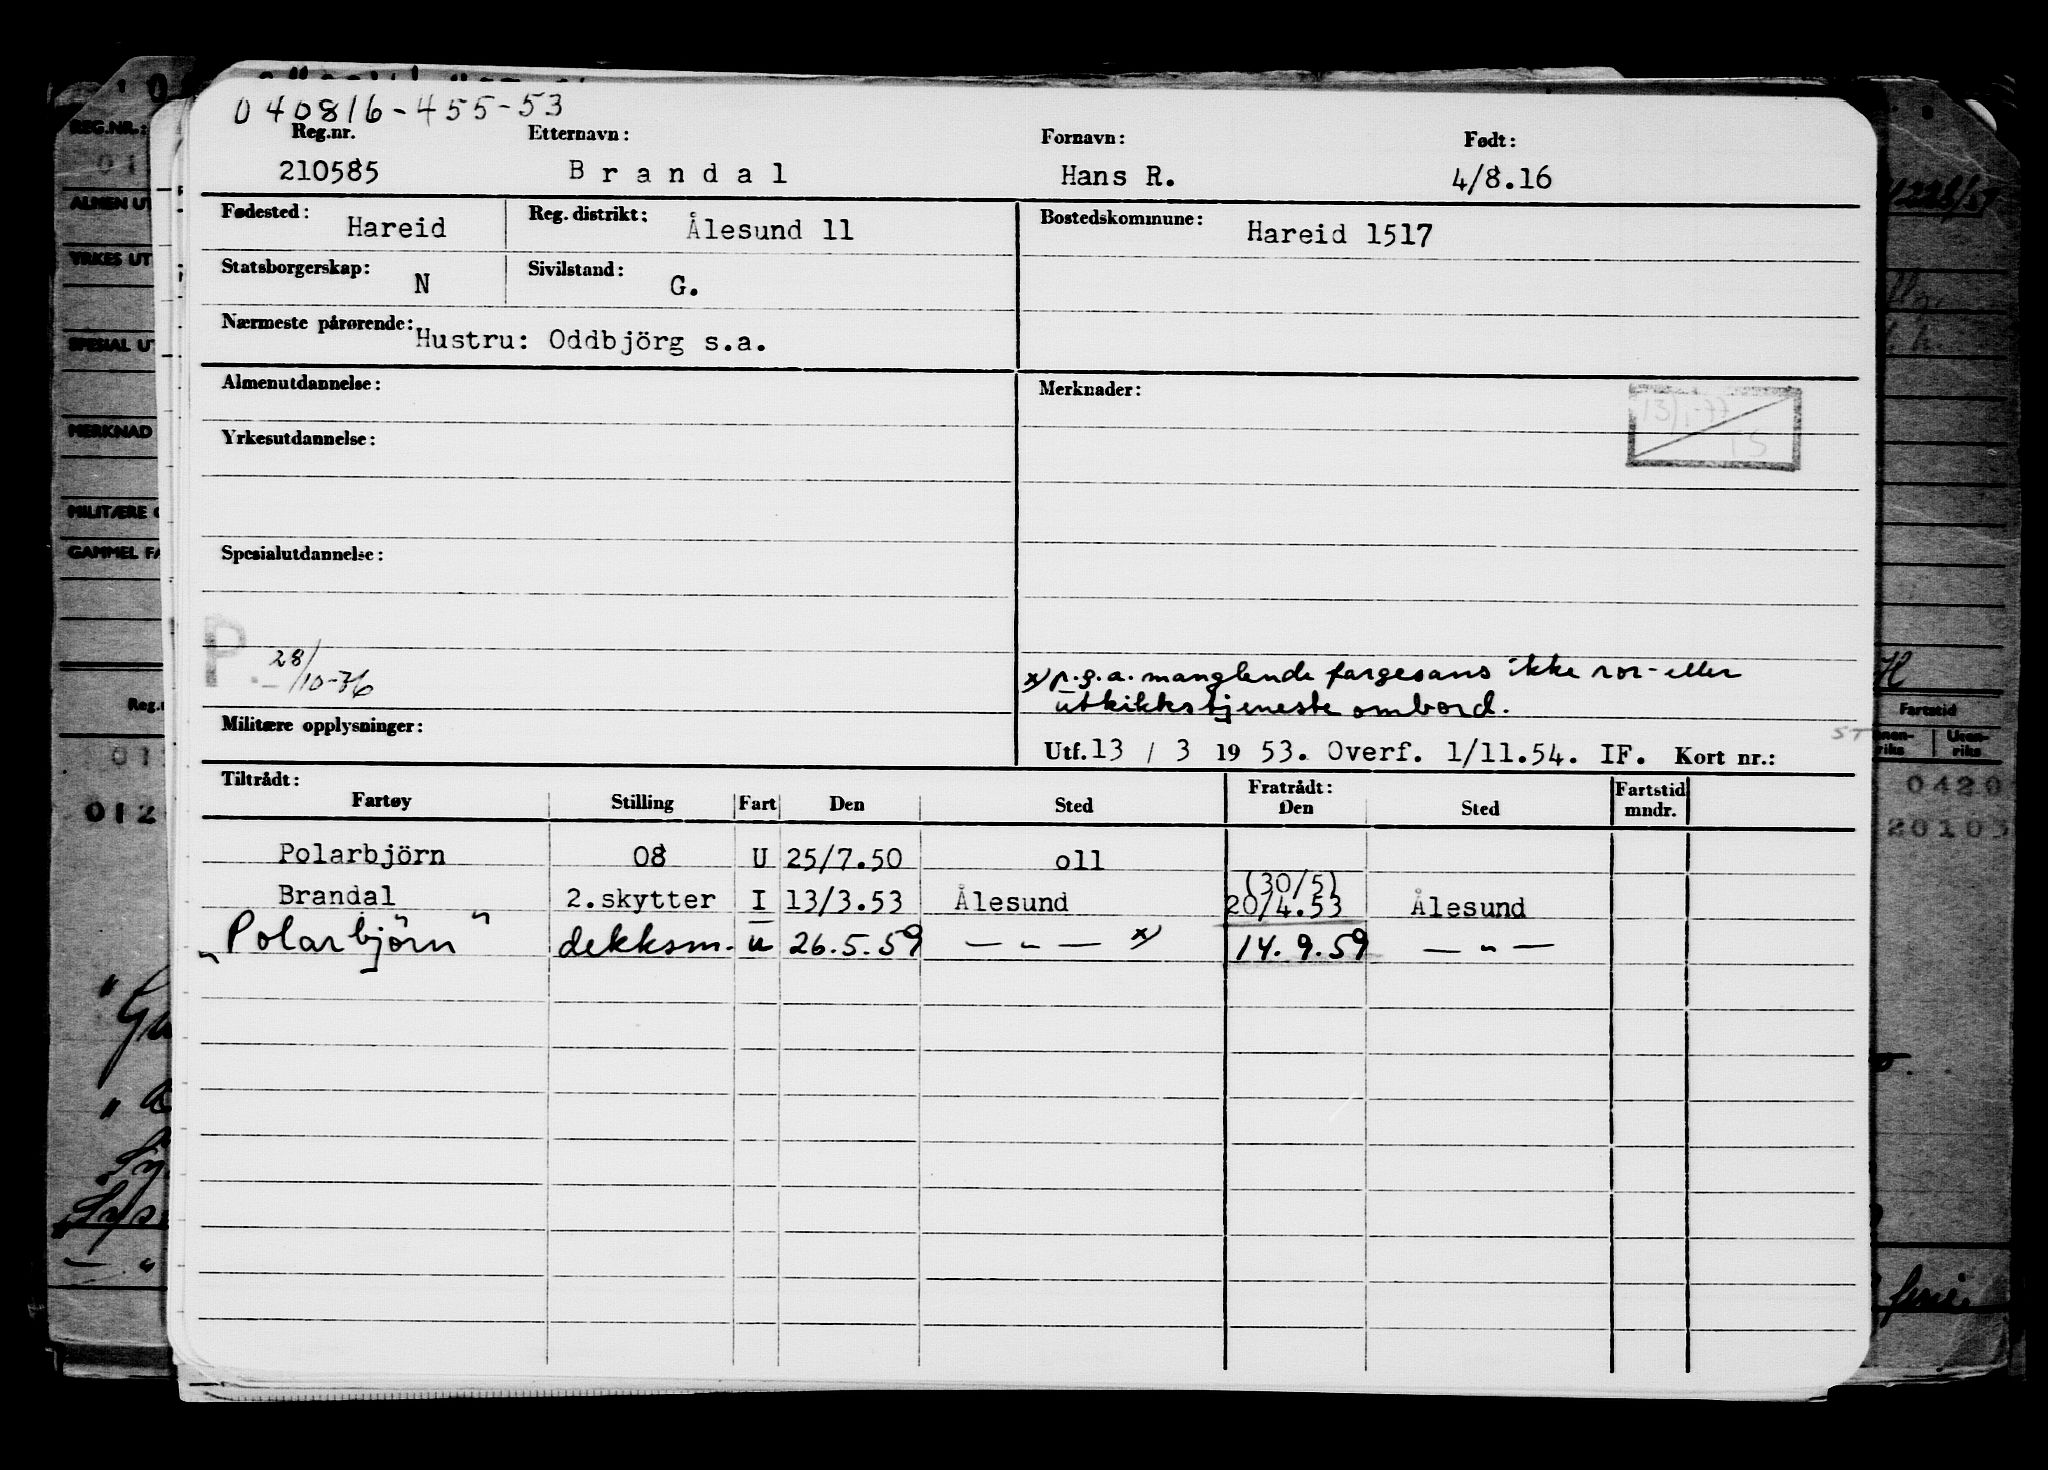 040816-455-53
Reg.nr. Etternavn: Fornavn: Født:
210585 Brandal Hans R. 4/8.16
Fødested: Hareid Reg. distrikt: Ålesund 11 Bostedskommune: Hareid 1517
Statsborgerskap: N Sivilstand: G.
Nærmeste pårørende: Hustru: Oddbjörg s.a.
Almenutdannelse: Merknader:
13/1-77
Yrkesutdannelse:
Spesialutdannelse:
P. 28/10-36
x) p.g.a. manglende fargesans ikke ror- eller
utkikkstjeneste ombord.
Militære opplysninger:
Utf. 13 / 3 19 53. Overf. 1/11.54. IF. Kort nr.:
Tiltrådt: Fratrådt: Fartstid
Fartøy Stilling Fart Den Sted Den Sted mndr.
Polarbjörn 08 U 25/7.50 oll
(30/5)
Brandal 2.skytter I 13/3.53 Ålesund 20/4.53 Ålesund
"Polarbjörn" dekksm. u 26.5.59 — " — x) 14.9.59 — " —
REG.NR.:
ALMEN UT
YRKES UT
SPESIAL UT
MERKNAD
MILITÆRE
GAMMEL FA
Reg.
Fartstid
Uten-
riks
0420
20103